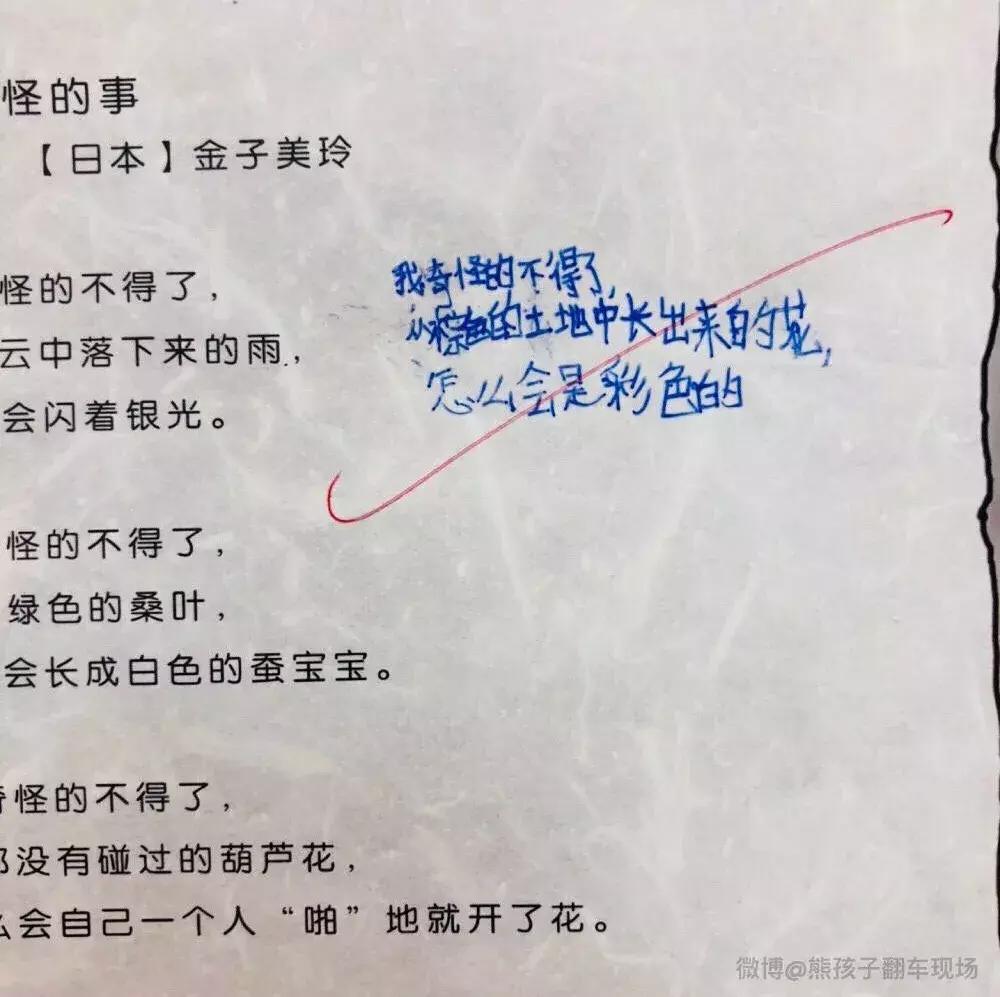 怪的事
【日本】金子美玲
怪的不得了，
云中落下来的雨，
会闪着银光。
我奇怪的不得了，
从棕色的土地中长出来的花，
怎么会是彩色的
怪的不得了，
绿色的桑叶，
会长成白色的蚕宝宝。
奇怪的不得了，
都没有碰过的葫芦花，
么会自己一个人“啪”地就开了花。
微博@熊孩子翻车现场